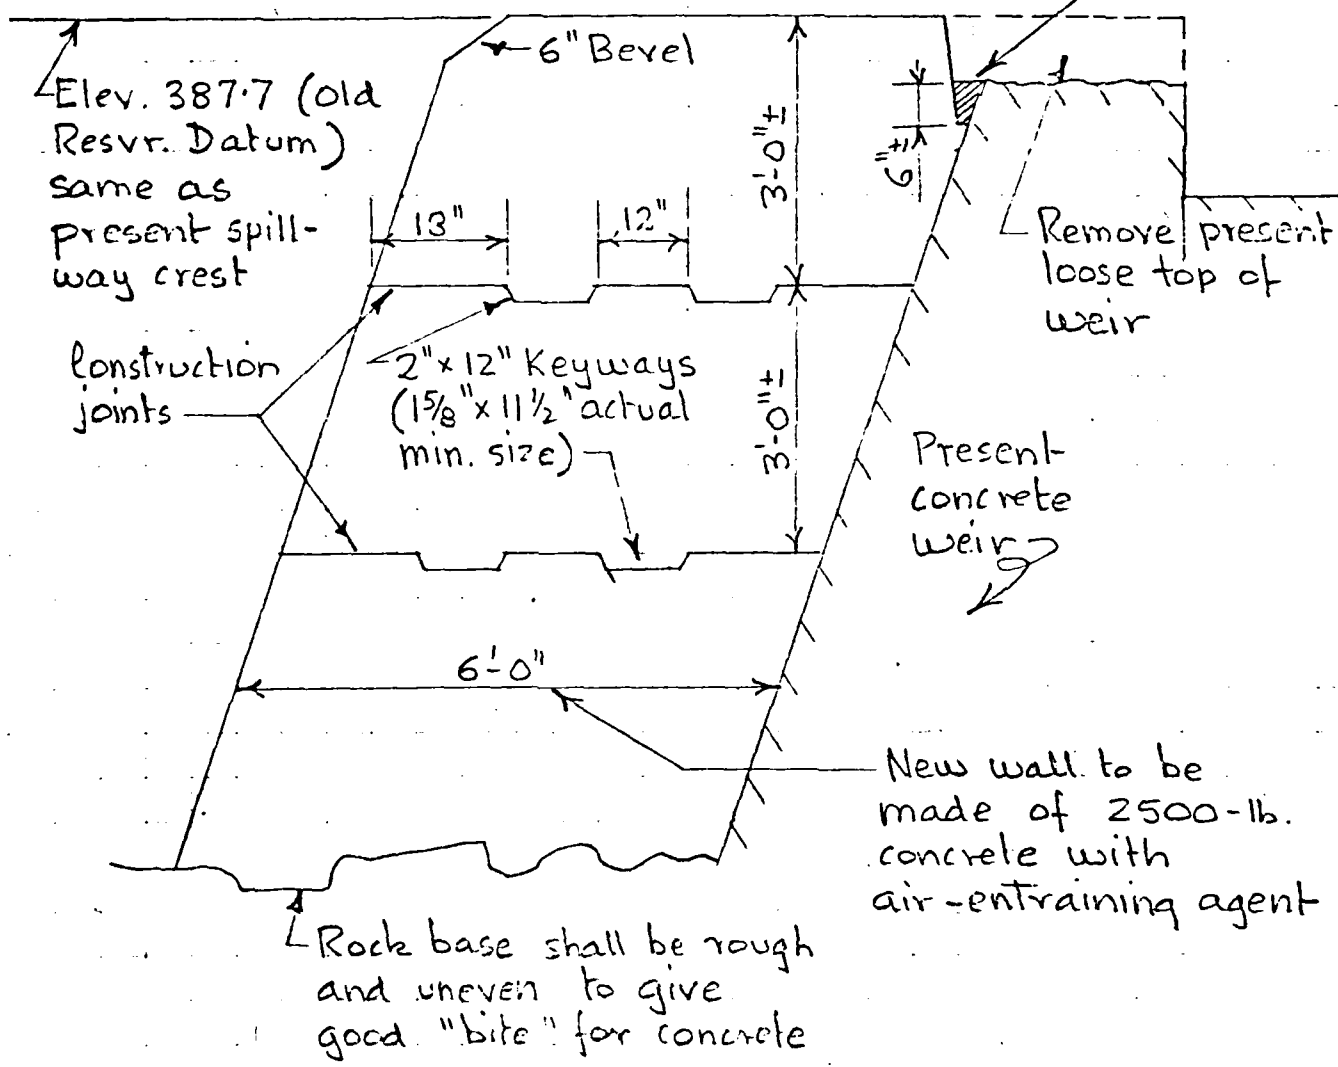 6" Bevel
Elev. 387.7 (Old
Resvr. Datum)
same as
present spill-
way crest
3'-0"±
6"±
18"
12"
Remove present
loose top of
weir
Construction
joints
2" x 12" Keyways
(1 5/8" x 11 1/2" actual
min. size)
3'-0"±
Present
concrete
weir
6'-0"
New wall to be
made of 2500-lb.
concrete with
air-entraining agent
Rock base shall be rough
and uneven to give
good "bite" for concrete